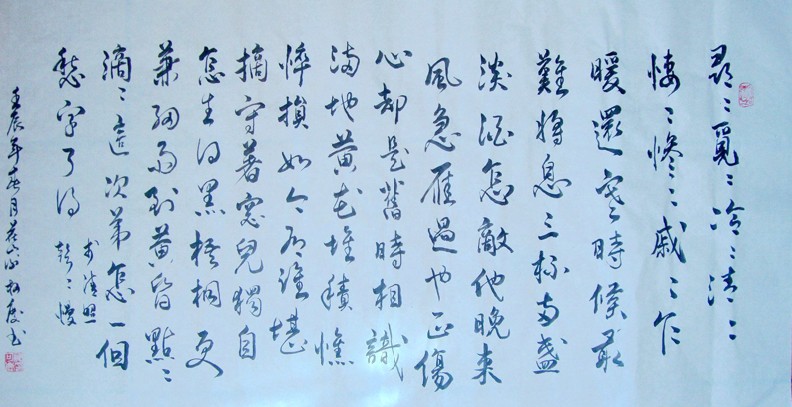 尋〻覓〻冷〻清〻
悽〻慘〻戚〻乍
暖還寒時候最
難將息三杯兩盞
淡酒怎敵他晚來
風急雁過也正傷
心却是舊時相識
滿地黃花堆積憔
悴損如今有誰堪
摘守著窗兒獨自
怎生得黑梧桐更
兼細雨到黃昏點〻
滴〻這次第怎一個
愁字了得
李清照
聲〻慢
壬辰年月書